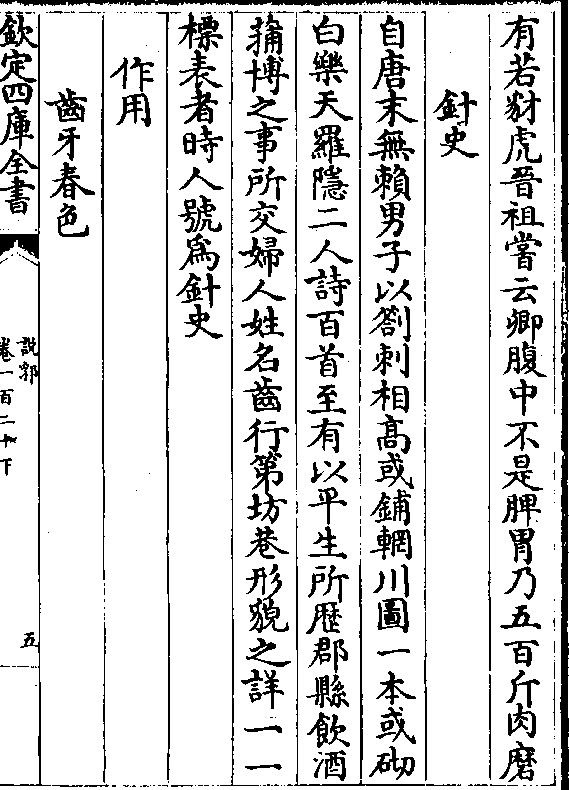 有若豺虎晉祖嘗云卿腹中不是脾胃乃五百斤肉磨
針史
自唐末無賴男子以劄刺相髙或鋪輞川圖一本或砌
白樂天羅隱二人詩百首至有以平生所歴郡縣飲酒
蒱博之事所交婦人姓名齒行第坊巷形貌之詳一一
標表者時人號爲針史
作用
齒牙春色
欽定四庫全書
說郛
卷一百二十下
五